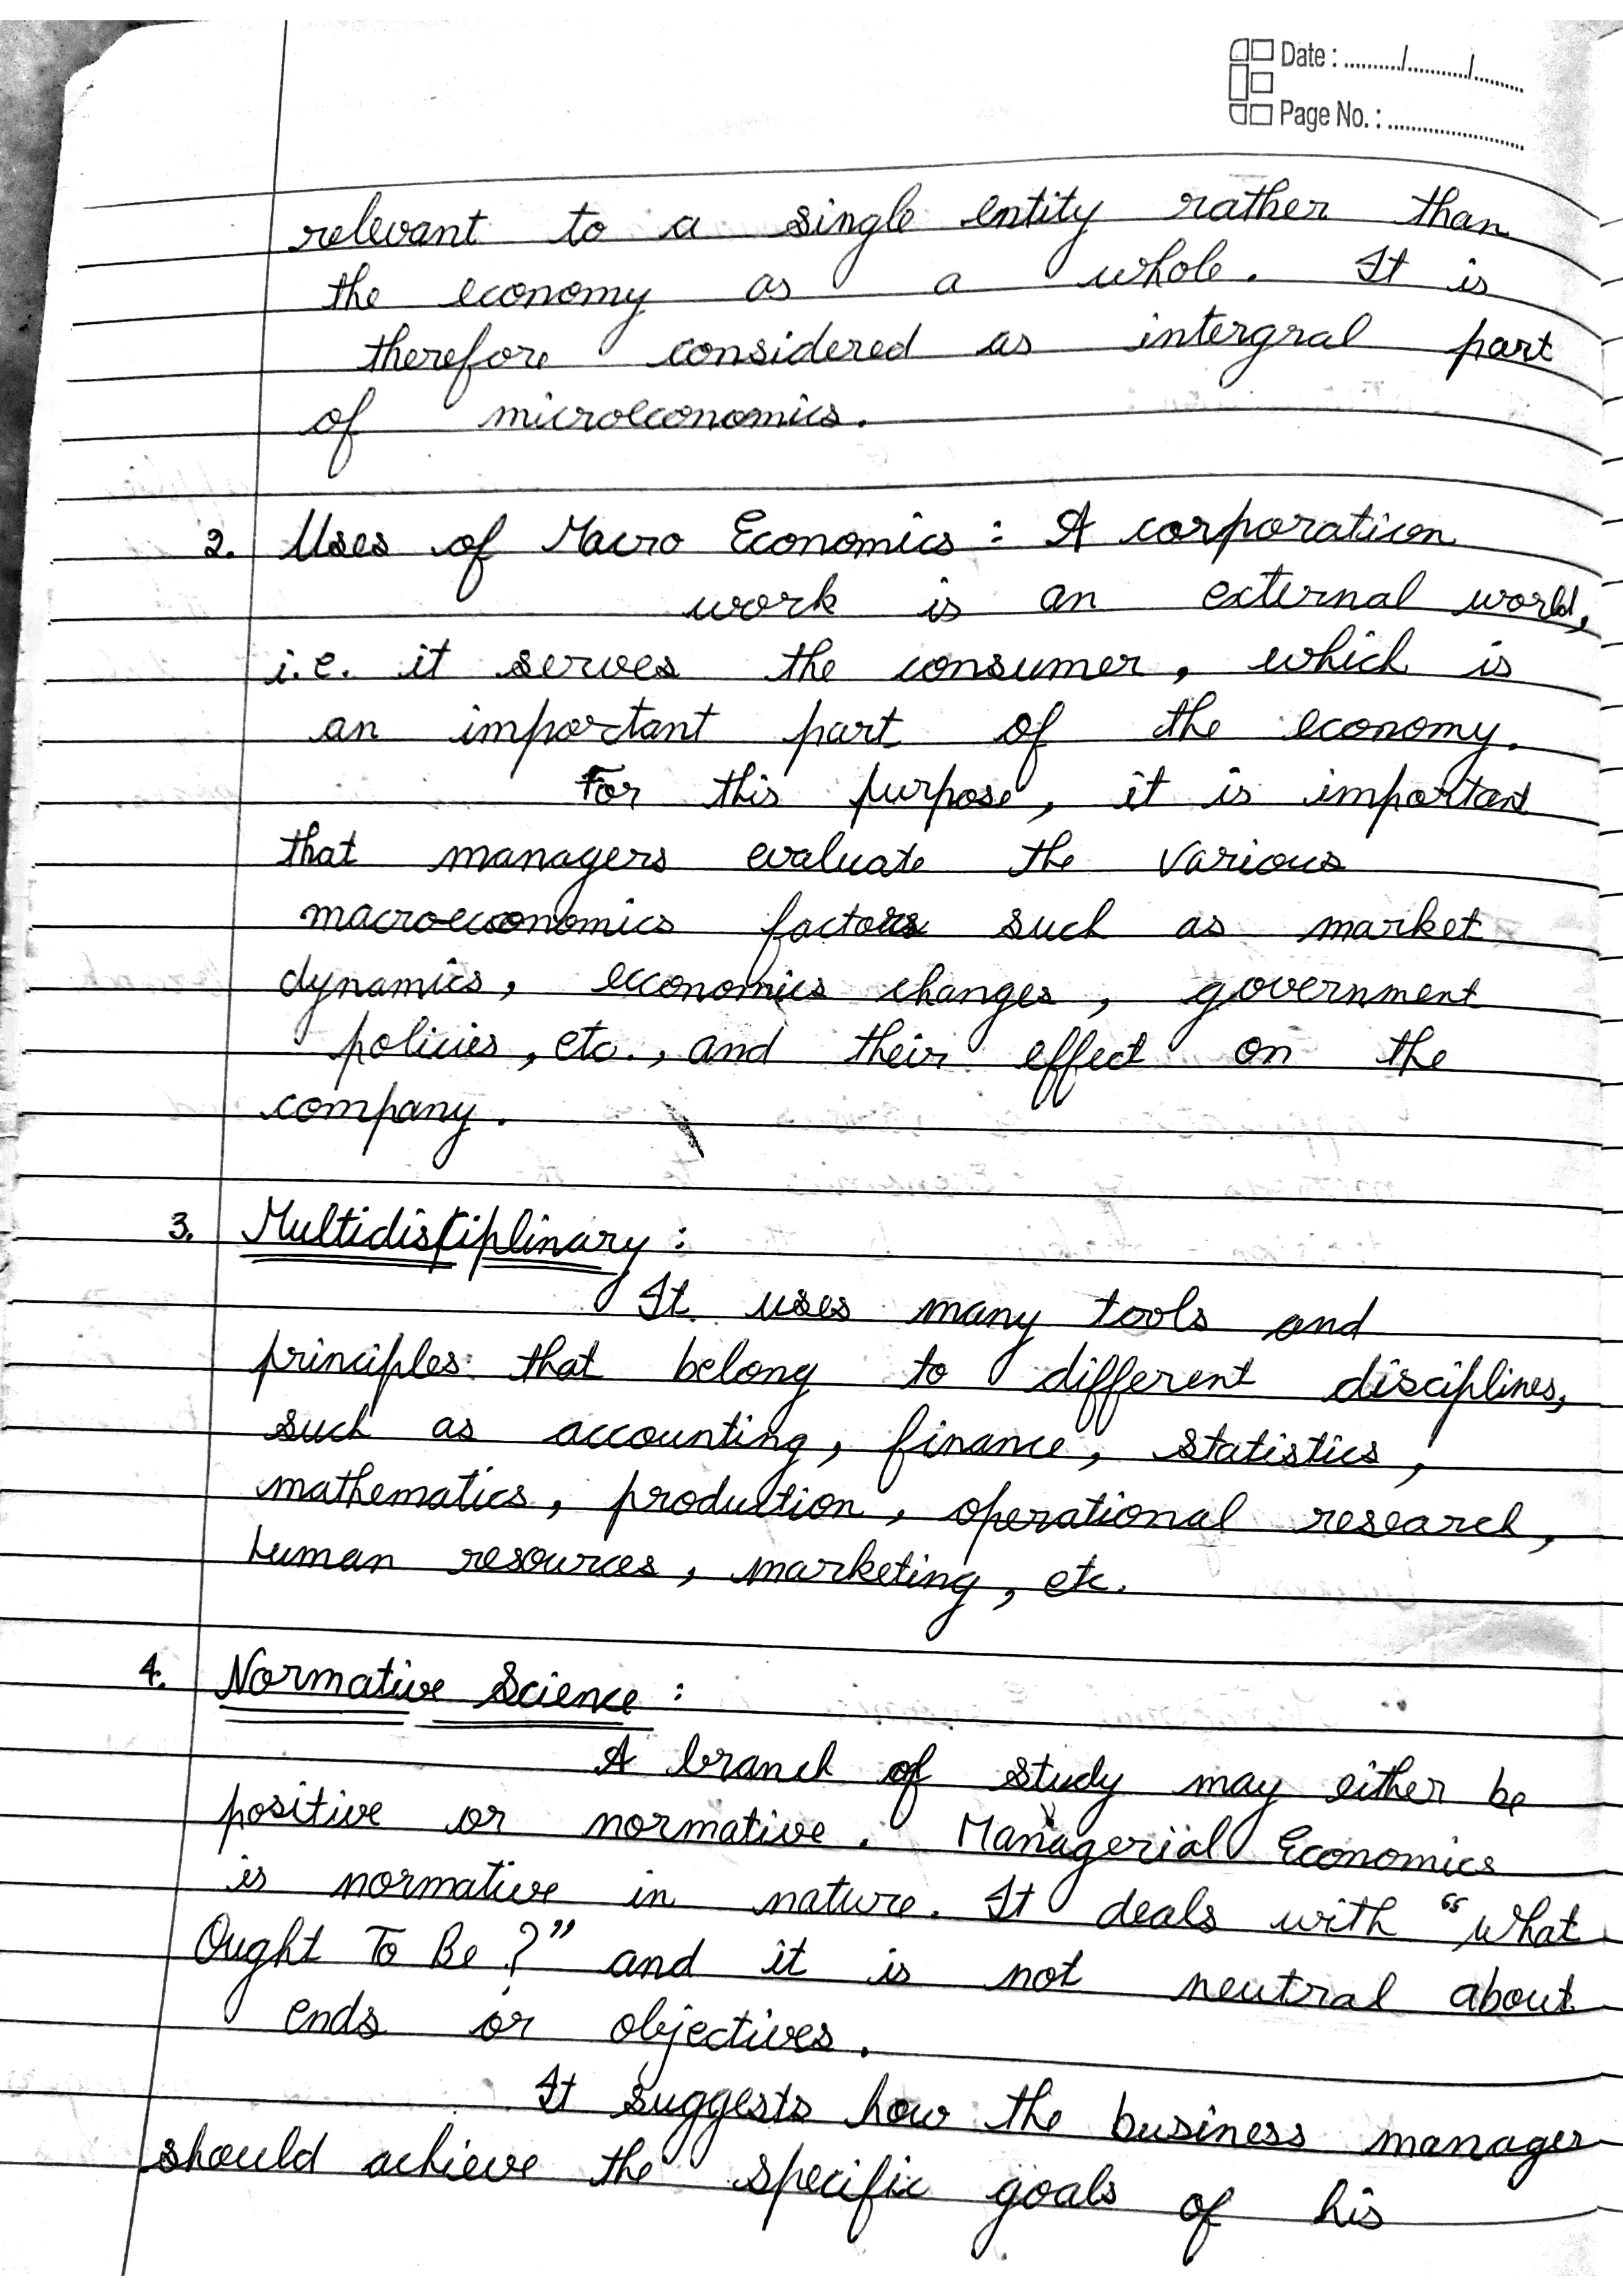 Date : ........../.........../.........
Page No. : ........................
relevant to a single entity rather than
the economy as a whole. It is
therefore considered as intergral part
of microeconomics.
2. Uses of Macro Economics : A corporation
work is an external world,
i.e. it serves the consumer, which is
an important part of the economy.
For this purpose, it is important
that managers evaluate the various
macroeconomics factors such as market
dynamics, economics changes, government
policies, etc., and their effect on the
company.
3. Multidisciplinary :
It uses many tools and
principles that belong to different disciplines,
such as accounting, finance, statistics,
mathematics, production, operational research,
human resources, marketing, etc.
4. Normative Science :
A branch of study may either be
positive or normative. Managerial Economics
is normative in nature. It deals with "what
Ought To Be ?" and it is not neutral about
ends or objectives.
It suggests how the business manager
should achieve the specific goals of his